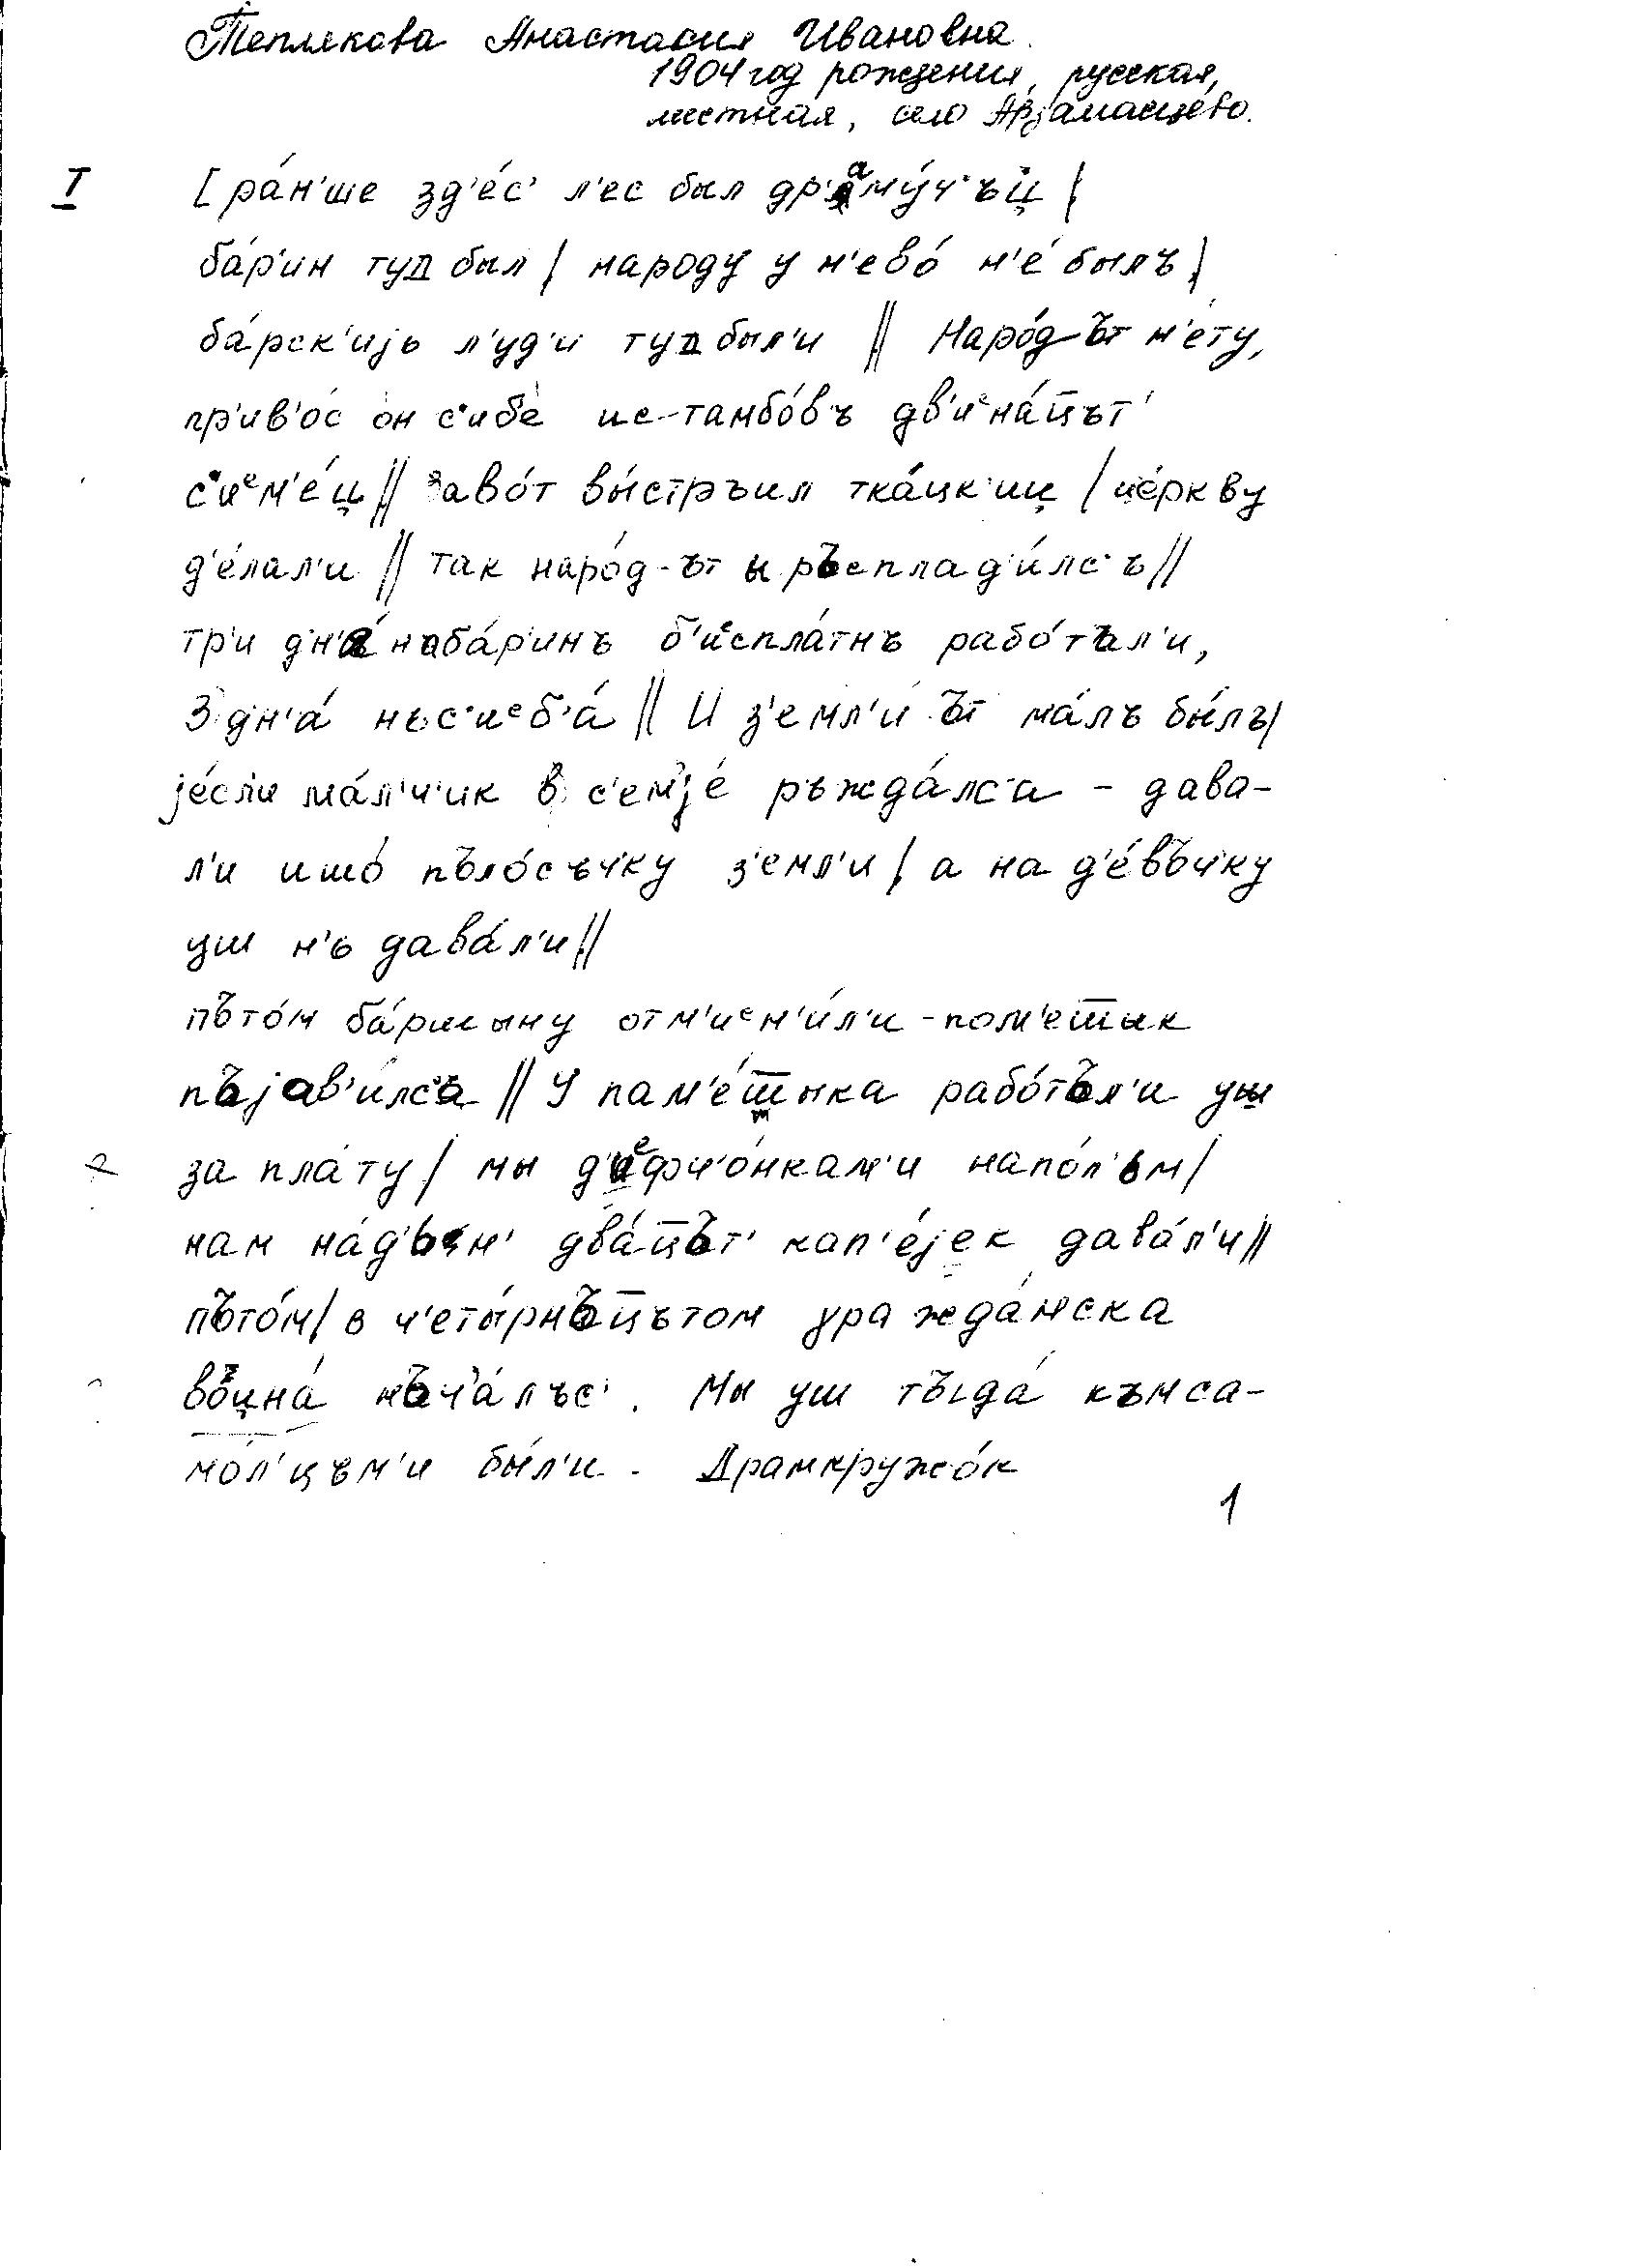 Теплякова Анастасия Ивановна.
1904 год рождения, русская,
местная, село Арзамасцево.
I [ра́н'ше зд'е́с' л'ес был др'аму́ч'ъй |
ба́р'ин туд был | народу у н'ево́ н'е́ былъ |
ба́рск'иjь л'уд'и туд был'и || Наро́д-ът н'е́ту,
пр'ив'о́с он с'иб'е́ ис-тамбо́въ дв'иᵉна́ц̅ът'
с'иᵉм'е́й || заво́т вы́стръил тка́цк'ий | це́ркву
д'е́лал'и || так наро́д-ът ы ръсплад'и́лс'ъ ||
тр'и дн'а́ наба́р'инъ б'иᵉспла́тнъ рабо́тъл'и,
3 дн'а́ нъс'иᵉб'а́ || И з'емл'и́ ът ма́лъ бы́лъ |
jе́сли ма́л'ч'ик в с'емjе́ ръжда́лс'а - дава-
л'и ишо́ пъло́съч'ку з'емл'и | а на д'е́въч'ку
уш н'ь дава́л'и ||
пъто́м ба́ршыну отм'иᵉн'и́л'и - пом'ет̅ш̅ык
пъjав'и́лс'а || У пам'е́ш̅ыка рабо́тъл'и уш
за пла́ту | мы д'иᵉфч'о́нкам'и напо́л'ьм |
нам на́д'ьн' два́ц̅ът' кап'е́jек дава́л'и ||
пъто́м | в ч'еты́рнъц̅ътом γражда́нска
въйна́ нъч'а́лъс'. Мы уш тъгда́ къмса-
мо́л'цъм'и бы́л'и. Драмкружо́к
1